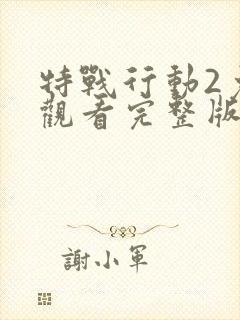 特戰行動2
觀看完整版
謝小軍